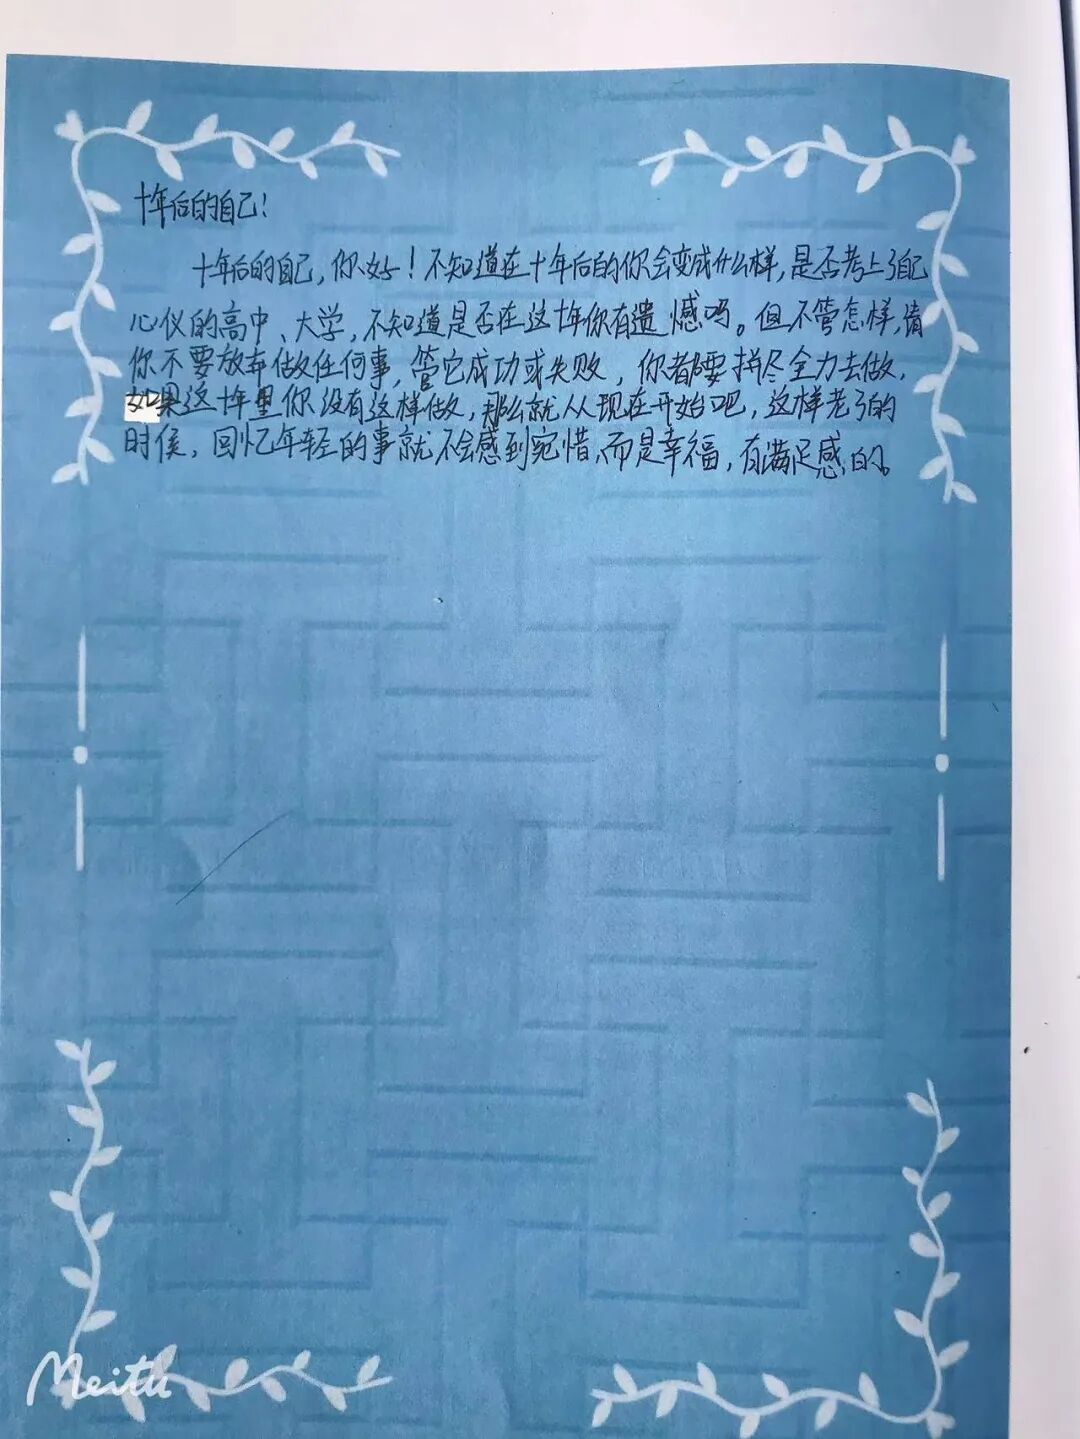 十年后的自己！
十年后的自己，你好！不知道在十年后的你会变成什么样，是否考上了自己
心仪的高中、大学，不知道是否在这十年你有遗憾吗。但不管怎样，请
你不要放弃做任何事，管它成功或失败，你都要拼尽全力去做，
如果这十年里你没有这样做，那么就从现在开始吧，这样老了的
时候，回忆年轻的事就不会感到宛惜，而是幸福，有满足感的。
Meitu